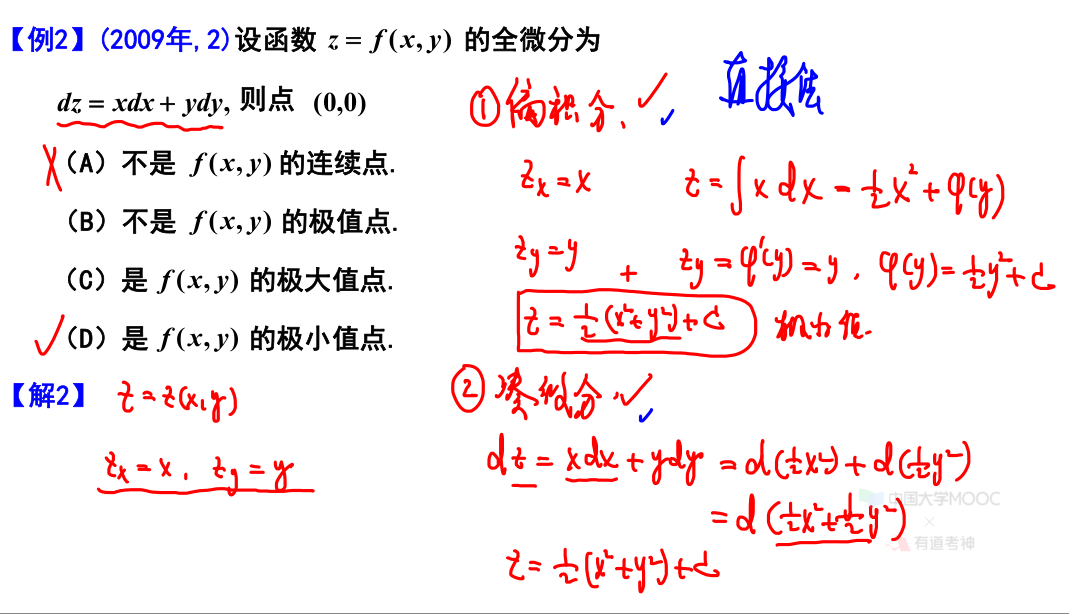 【例2】(2009年,2)设函数 z = f(x,y) 的全微分为
dz = xdx + ydy, 则点 (0,0)
(A)不是 f(x,y)的连续点.
(B)不是 f(x,y) 的极值点.
(C)是 f(x,y) 的极大值点.
(D)是 f(x,y) 的极小值点.
【解2】 z = z(x,y)
z_x = x, z_y = y
直接法
① 偏积分、
z_x = x z = ∫ x dx = ½x² + φ(y)
z_y = y z_y = φ'(y) = y, φ(y) = ½y² + C
z = ½(x²+y²)+C 极小值.
② 凑微分、
dz = xdx + ydy = d(½x²) + d(½y²)
= d(½x²+½y²)
z = ½(x²+y²)+C
中国大学MOOC
×
有道考神